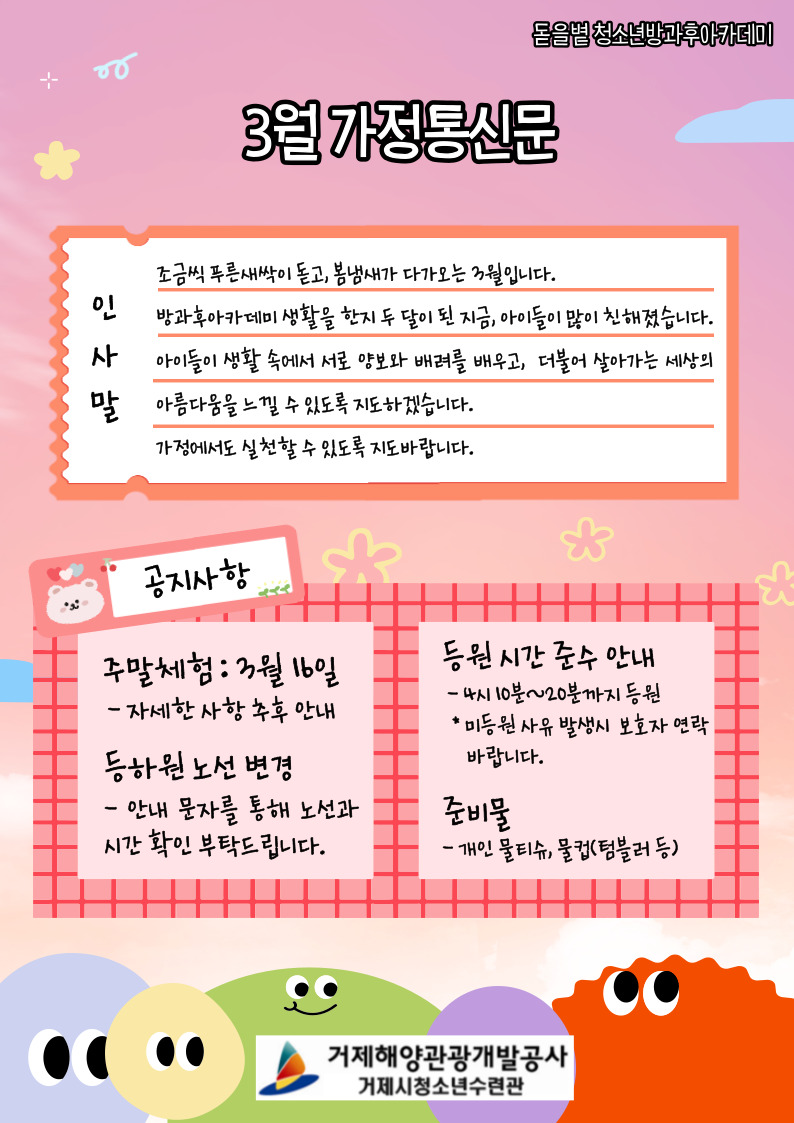 돋을볕 청소년방과후아카데미
3월 가정통신문
인사말
조금씩 푸른새싹이 돋고, 봄냄새가 다가오는 3월입니다.
방과후아카데미 생활을 한지 두 달이 된 지금, 아이들이 많이 친해졌습니다.
아이들이 생활 속에서 서로 양보와 배려를 배우고, 더불어 살아가는 세상의
아름다움을 느낄 수 있도록 지도하겠습니다.
가정에서도 실천할 수 있도록 지도바랍니다.
공지사항
주말체험 : 3월 16일
- 자세한 사항 추후 안내
등하원 노선 변경
- 안내 문자를 통해 노선과
시간 확인 부탁드립니다.
등원 시간 준수 안내
- 4시 10분~20분까지 등원
* 미등원 사유 발생시 보호자 연락
바랍니다.
준비물
- 개인 물티슈, 물컵(텀블러 등)
거제해양관광개발공사
거제시청소년수련관